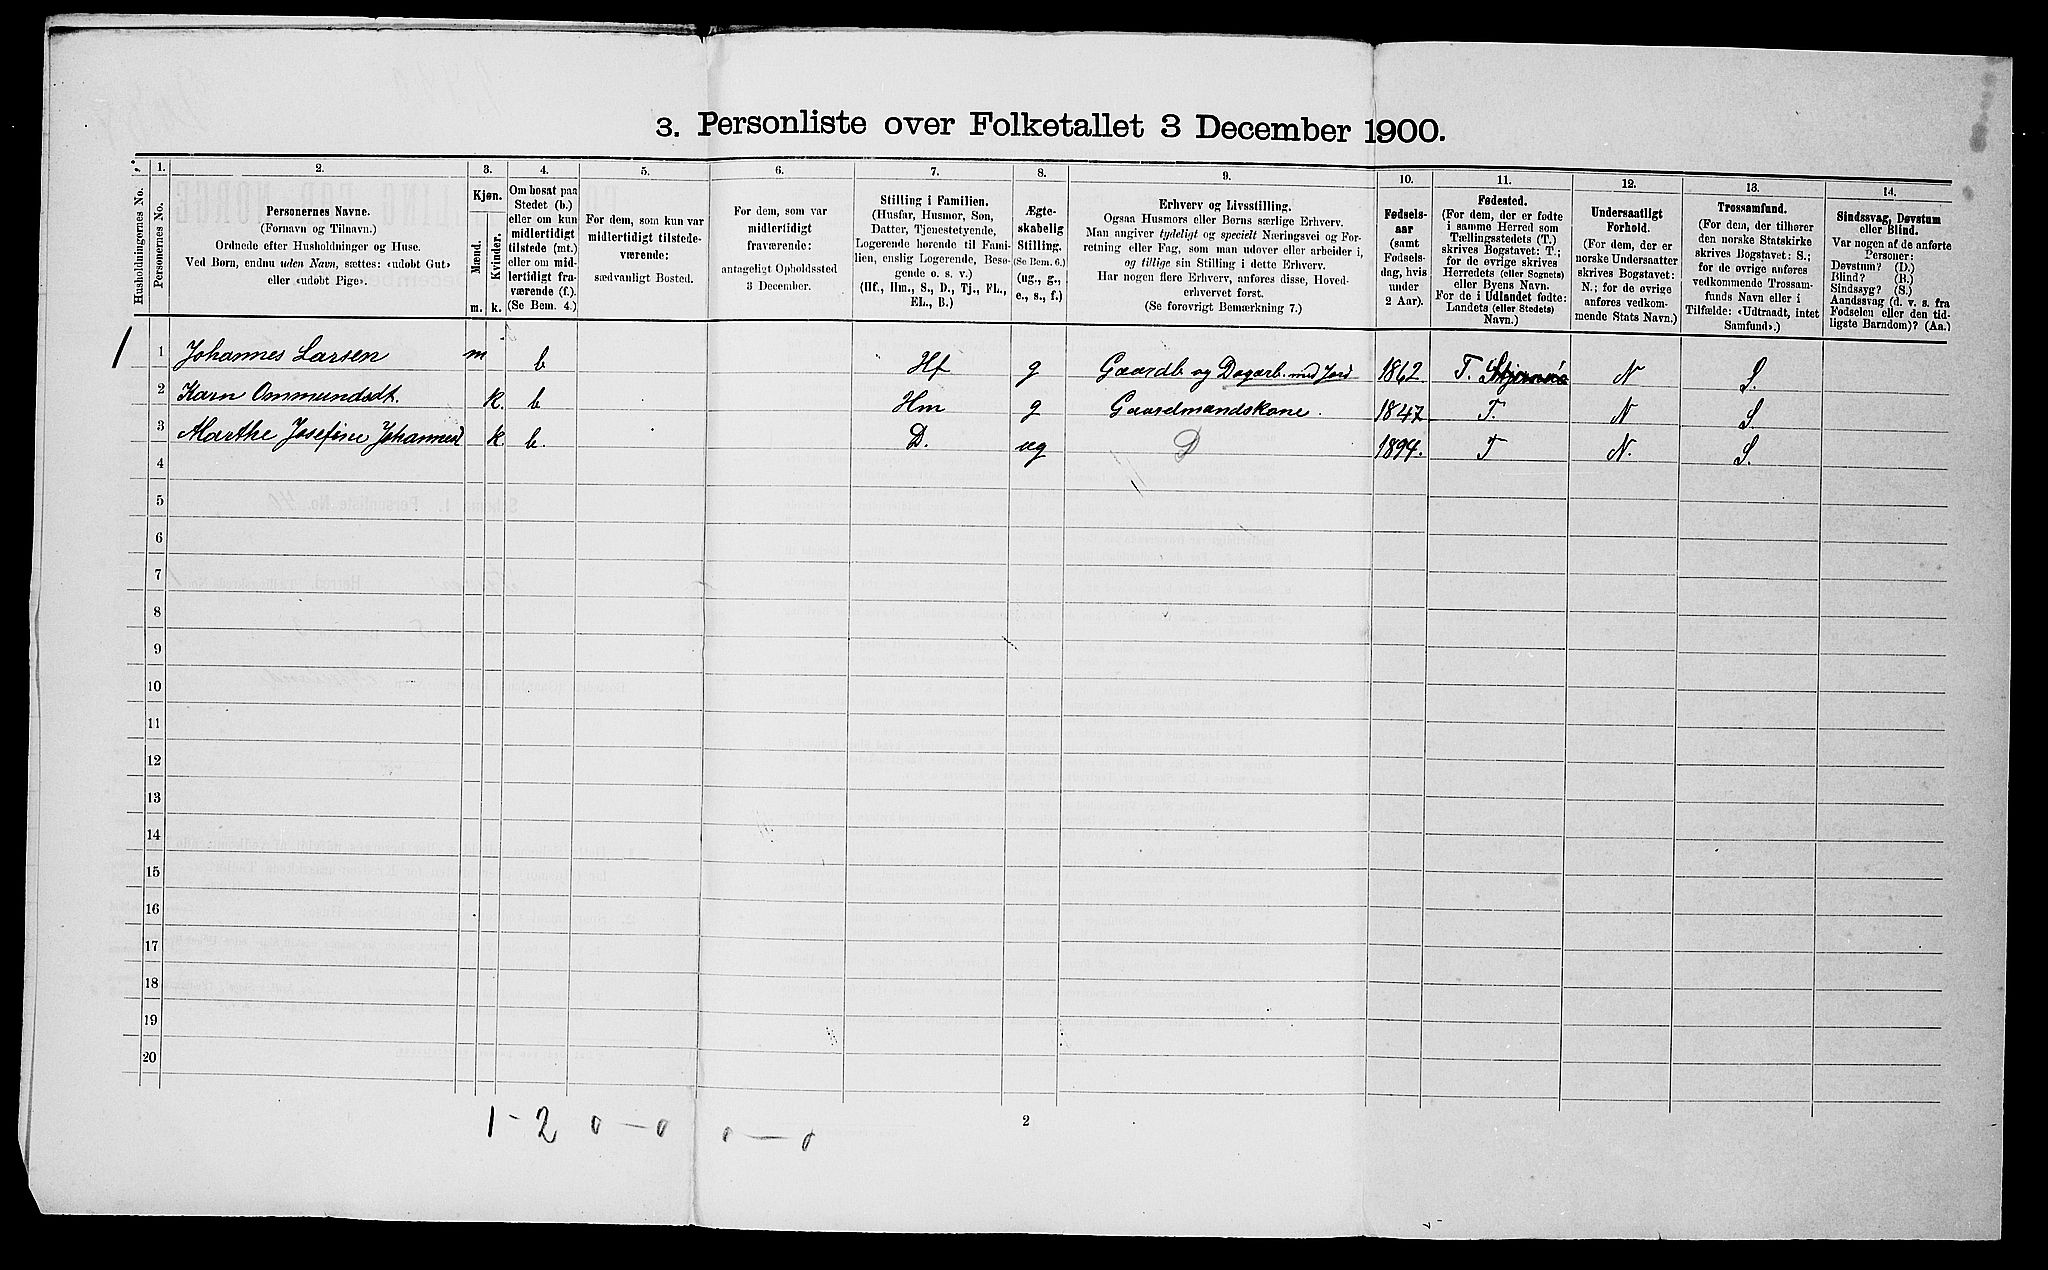 3. Personliste over Folketallet 3 December 1900.
Husholdningernes No.
1.
Personernes No.
2.
Personernes Navne.
(Fornavn og Tilnavn.)
Ordnede efter Husholdninger og Huse.
Ved Børn, endnu uden Navn, sættes: «udøbt Gut»
eller «udøbt Pige».
3.
Kjøn.
Mænd.
Kvinder.
m. k.
4.
Om bosat paa
Stedet (b.)
eller om kun
midlertidigt
tilstede (mt.)
eller om mid-
lertidigt fra-
værende (f.).
(Se Bem. 4.)
5.
For dem, som kun var
midlertidigt tilstede-
værende:
sædvanligt Bosted.
6.
For dem, som var
midlertidigt
fraværende:
antageligt Opholdssted
3 December.
7.
Stilling i Familien.
(Husfar, Husmor, Søn,
Datter, Tjenestetyende,
Logerende hørende til Fami-
lien, enslig Logerende, Besø-
gende o. s. v.)
(Hf., Hm., S., D., Tj., FL.,
EL., B.)
8.
Ægte-
skabelig
Stilling.
(Se Bem. 6.)
(ug., g.,
e., s., f.)
9.
Erhverv og Livsstilling.
Ogsaa Husmors eller Børns særlige Erhverv.
Man angiver tydeligt og specielt Næringsvei og For-
retning eller Fag, som man udøver eller arbeider i,
og tillige sin Stilling i dette Erhverv.
Har nogen flere Erhverv, anføres disse, Hoved-
erhvervet først.
(Se forøvrigt Bemærkning 7.)
10.
Fødsels-
aar
(samt
Fødsels-
dag, hvis
under
2 Aar).
11.
Fødested.
(For dem, der er fødte
i samme Herred som
Tællingsstedets (T.)
skrives Bogstavet: T.;
for de øvrige skrives
Herredets (eller Sognets)
eller Byens Navn.
For de i Udlandet fødte:
Landets (eller Stedets)
Navn.)
12.
Undersaatligt
Forhold.
(For dem, der er
norske Undersaatter
skrives Bogstavet:
N.; for de øvrige
anføres vedkom-
mende Stats Navn.)
13.
Trossamfund.
(For dem, der tilhører
den norske Statskirke
skrives Bogstavet: S.;
for de øvrige anføres
vedkommende Trossam-
funds Navn eller i
Tilfælde: «Udtraadt, intet
Samfund».)
14.
Sindssvag, Døvstum
eller Blind.
Var nogen af de anførte
Personer:
Døvstum? (D.)
Blind? (B.)
Sindssyg? (S.)
Aandssvag (d. v. s. fra
Fødselen eller den tid-
ligste Barndom)? (Aa.)
1 1 Johannes Larsen m b Hf g Gaardb. og Dagarb. med Jord 1862 T. N S.
2 Karn Ommundsdt. k. b Hm g Gaardmandskone. 1847 T. N S.
3 Marthe Josefine Johannesd k b. D. ug D 1894. T N. S.
4
5
6
7
8
9
10
11
12
13
14
15
16
17
18
19
20
1 - 2 0 - 0 0 - 0
2